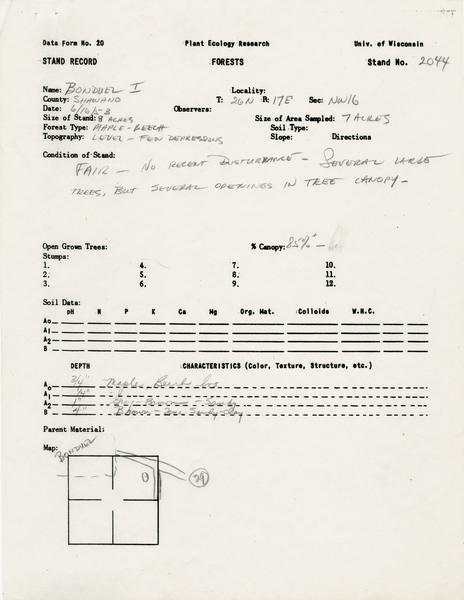 Data Form No. 20 Plant Ecology Research Univ. of Wisconsin
STAND RECORD FORESTS Stand No. 2044
Name: BONDUEL I Locality:
County: SHAWANO T: 26N R: 17E Sec: NW16
Date: 6/16/53 Observers:
Size of Stand: 8 ACRES Size of Area Sampled: 7 ACRES
Forest Type: MAPLE-BEECH Soil Type:
Topography: LEVEL - FEW DEPRESSIONS Slope: Directions
Condition of Stand:
FAIR - NO RECENT DISTURBANCE - SEVERAL LARGE
TREES, BUT SEVERAL OPENINGS IN TREE CANOPY -
Open Grown Trees: % Canopy: 85%+ -
Stumps:
1. 4. 7. 10.
2. 5. 8. 11.
3. 6. 9. 12.
Soil Data:
pH N P K Ca Mg Org. Mat. Colloids W.H.C.
A0
A1
A2
B
DEPTH CHARACTERISTICS (Color, Texture, Structure, etc.)
A0 3/4" Maple, Beech lvs
A1 1/4"
A2 1" Brown - Sandy
B 4" Brown - Fine Sandy Clay
Parent Material:
Map: BONDUEL
29